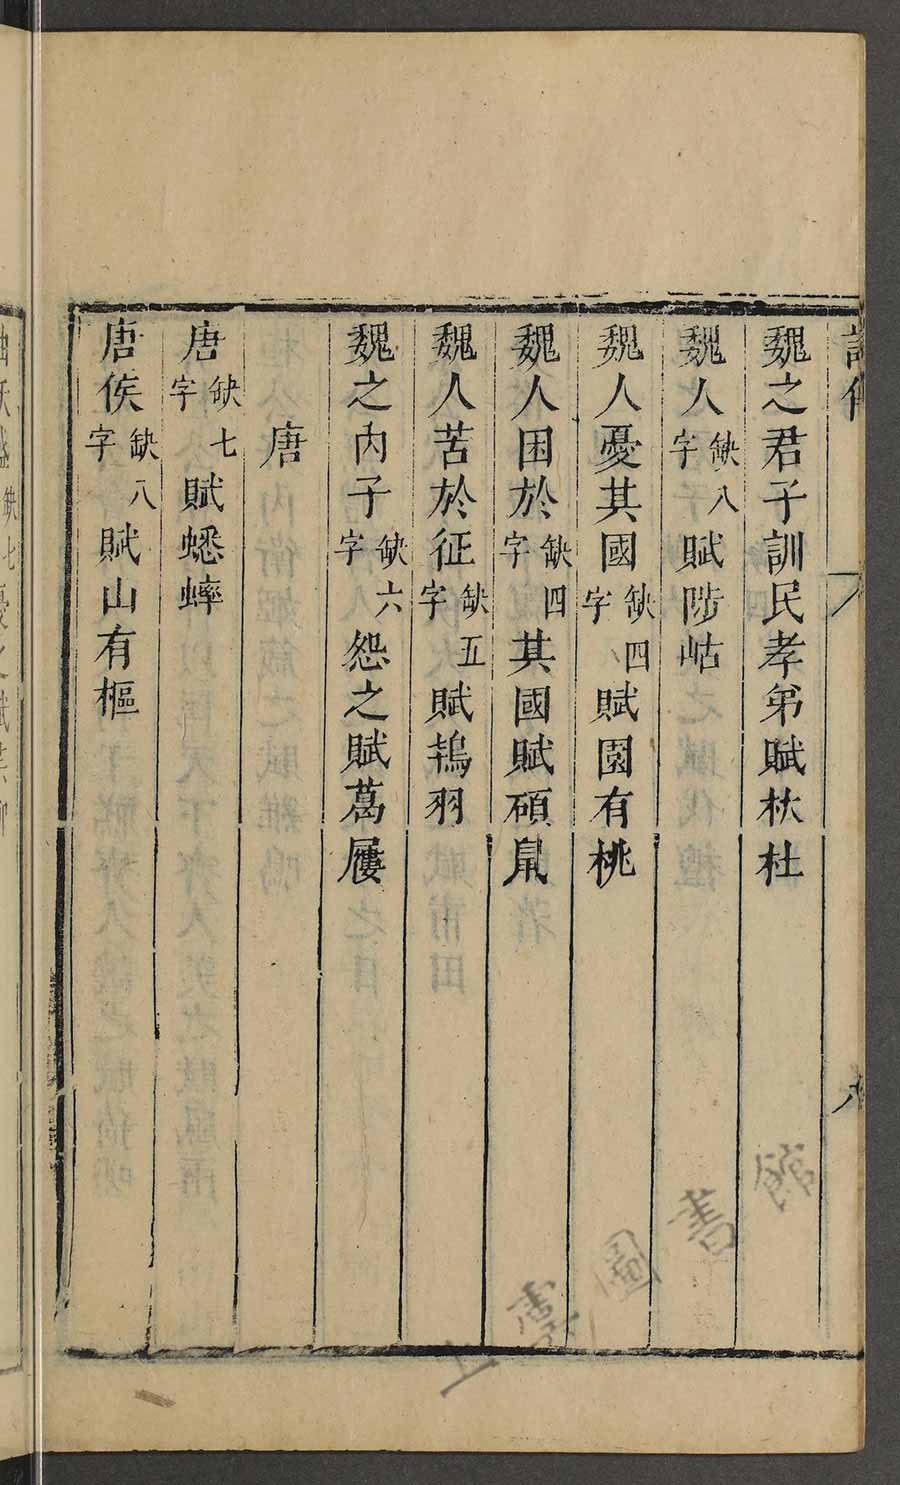 魏之君子訓民孝弟賦杕杜
魏人缺八字賦陟岵
魏人憂其國缺四字賦園有桃
魏人困於缺四字其國賦碩鼠
魏人苦於征缺五字賦鴇羽
魏之內子缺六字怨之賦葛屨
唐
唐缺七字賦蟋蟀
唐侯缺八字賦山有樞